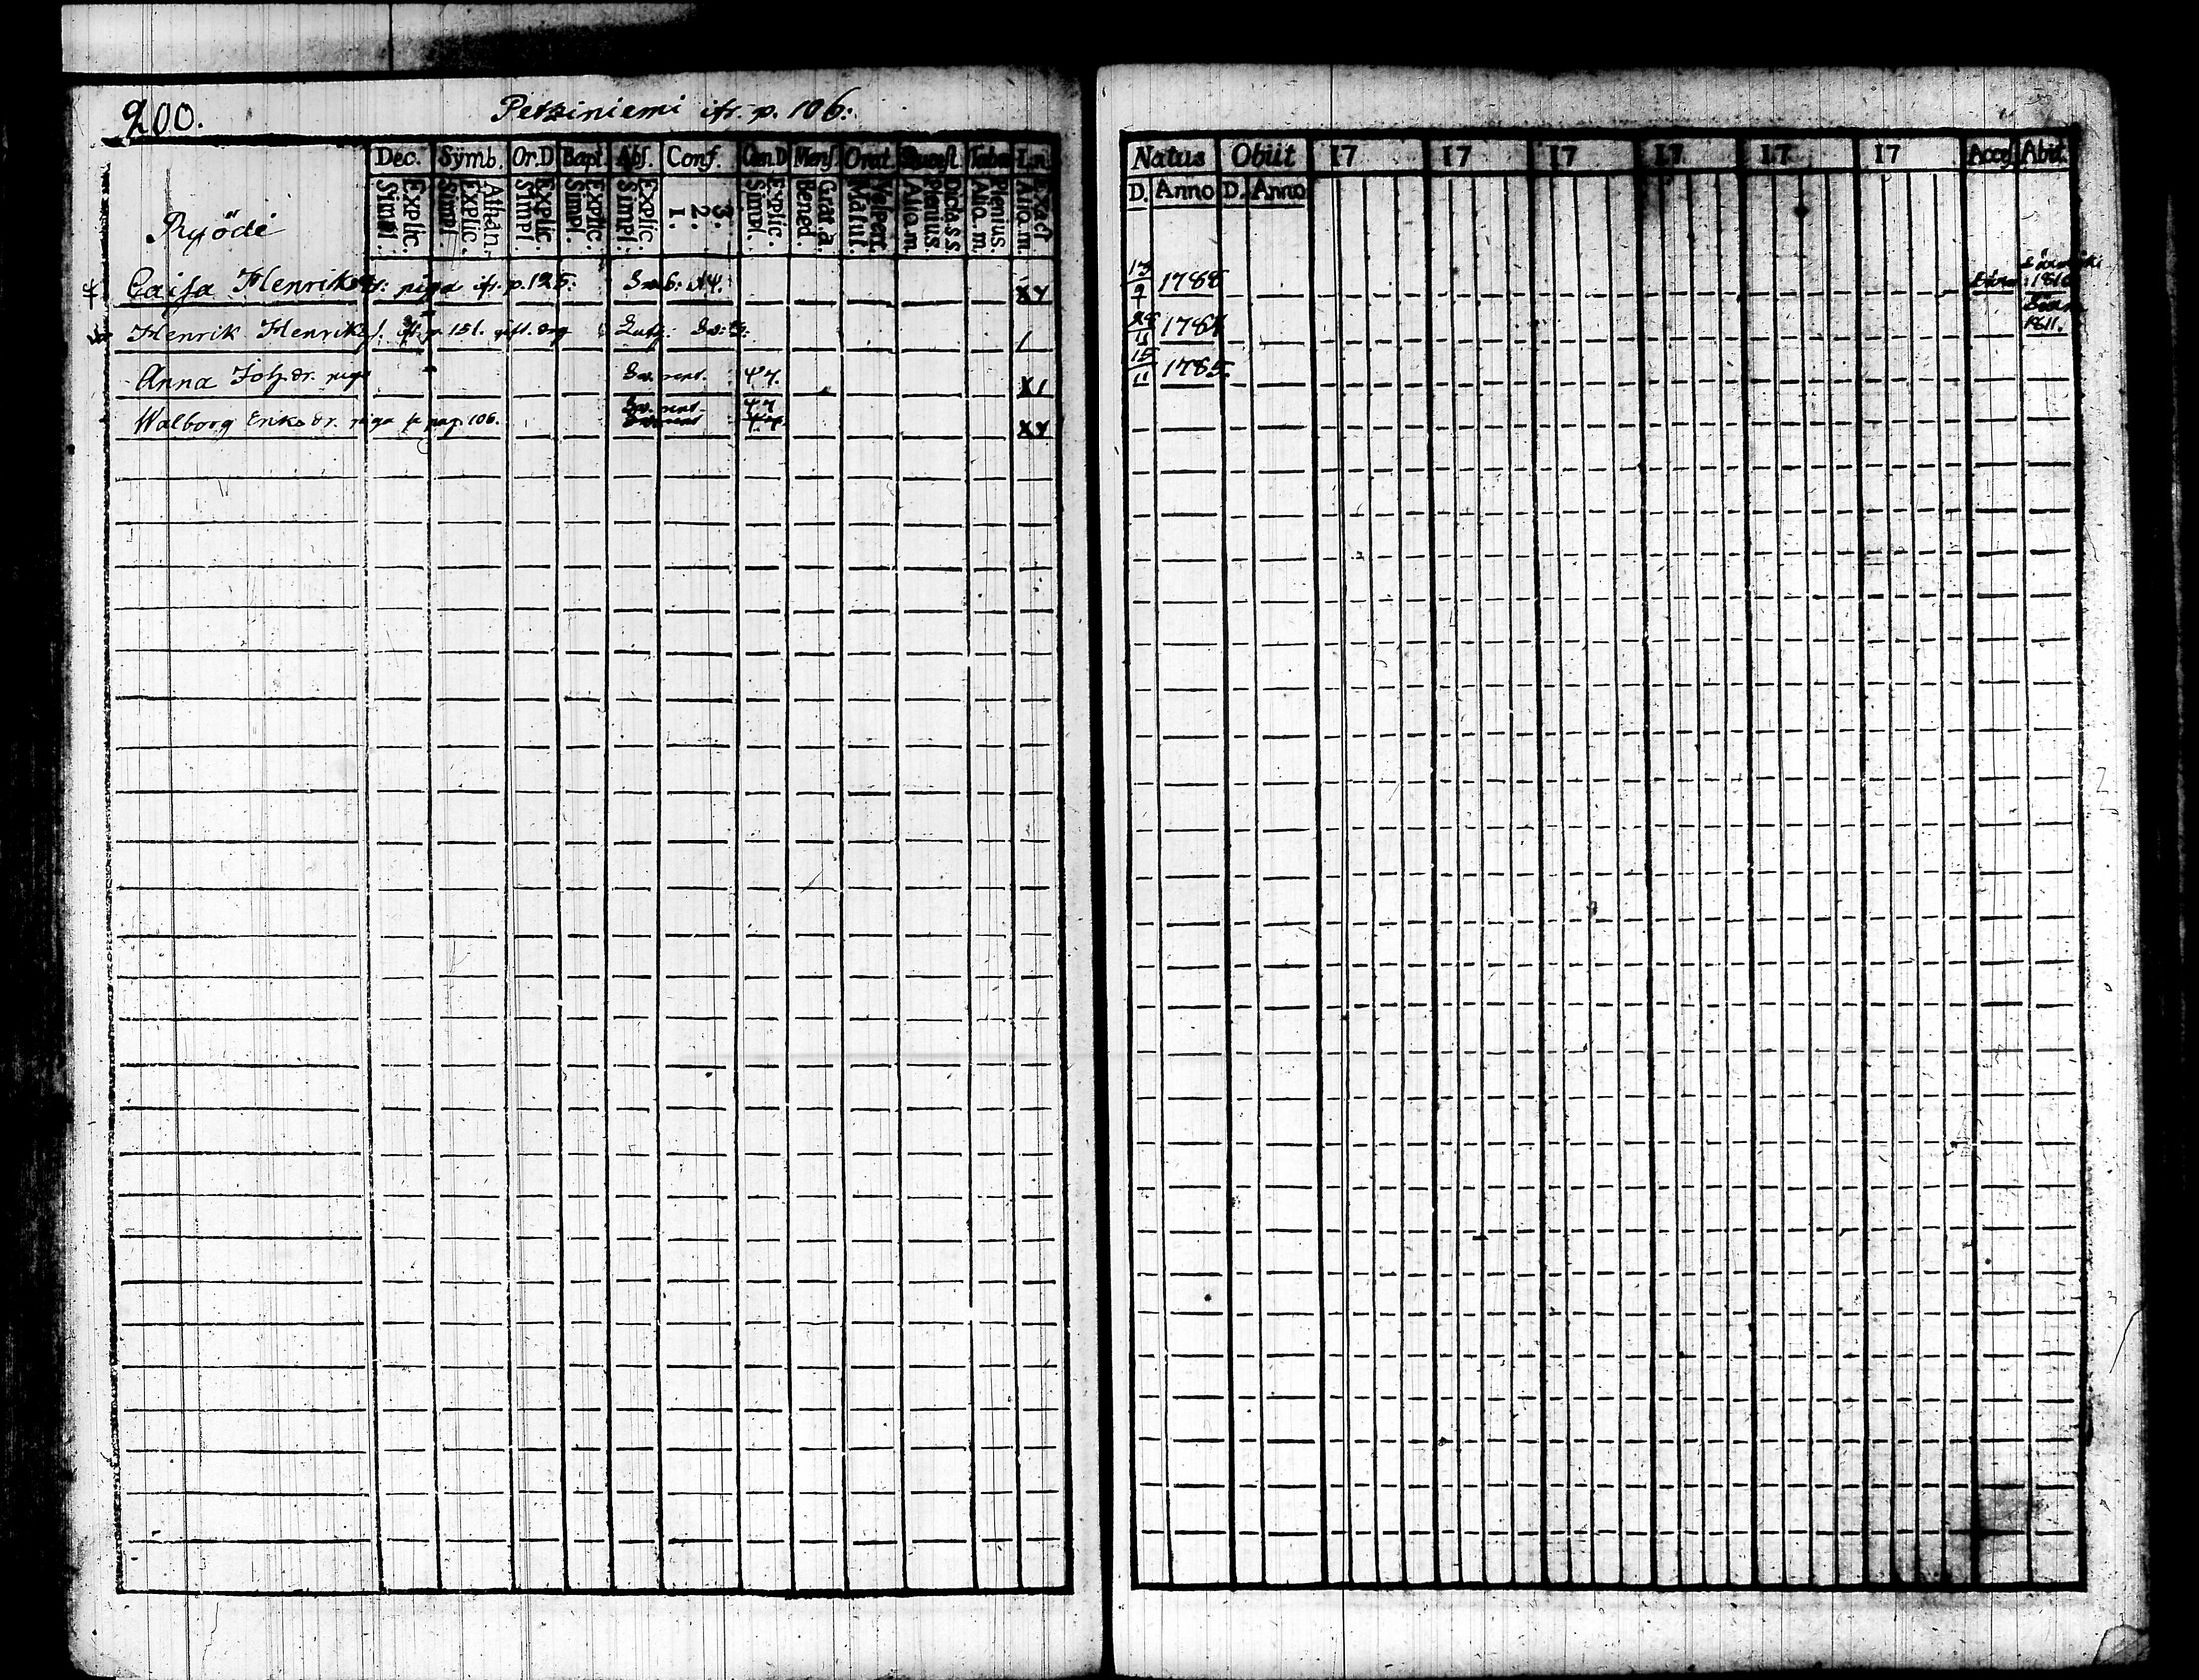 200. Petziniemi ifr. p. 106:
Dec. Symb. Or.D Bapt. Abs. Conf. Cœn.D Mens. Orat. Quæst. Tabæ I.n.
Simpl. Explic. Simpl. Explic. Athan. Simpl. Explic. Simpl. Explic. Simpl. Explic. 1. 2. 3. Simpl. Explic. Bened. Grat.a. Matut. Vespert. Alio.m. Plenius. Dicta.s.s. Alio.m. Plenius. Alio.m. Exact
Ryödi
Caisa Henriks piga ifr. p. 125. Sw. b. XY
Henrik Henriks p. 151. gift. drg /
Anna Joh. dr. piga Sw. 47. X1
Walborg Eriks dr. piga pag. 106. 47 XY
Natus Obiit 17 17 17 17 17 17 Acces. Abit.
D. Anno D. Anno
13/9 1788 1810
1811.
15/11 1785